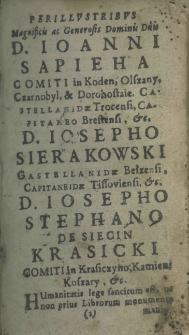 PERILLVSTRIBVS
Magnificis ac Generosis Dominis Dnis
D. IOANNI
SAPIEHA
COMITI in Koden, Olszany,
Czarnobyl, & Dorohostaie. CA-
STELLANIDÆ Trocensi, CA-
PITANEO Brestensi, &c.
D. IOSEPHO
SIERAKOWSKI
CASTELLANIDÆ Belzensi,
CAPITANEIDÆ Tissoviensi, &c.
D. IOSEPHO
STEPHANO
DE SIECIN
KRASICKI
COMITI in Krasiczyno, Kamień
Koszary, &c.
Humanitatis lege sancitum est, ut
non prius Librorum monumenta
(2)